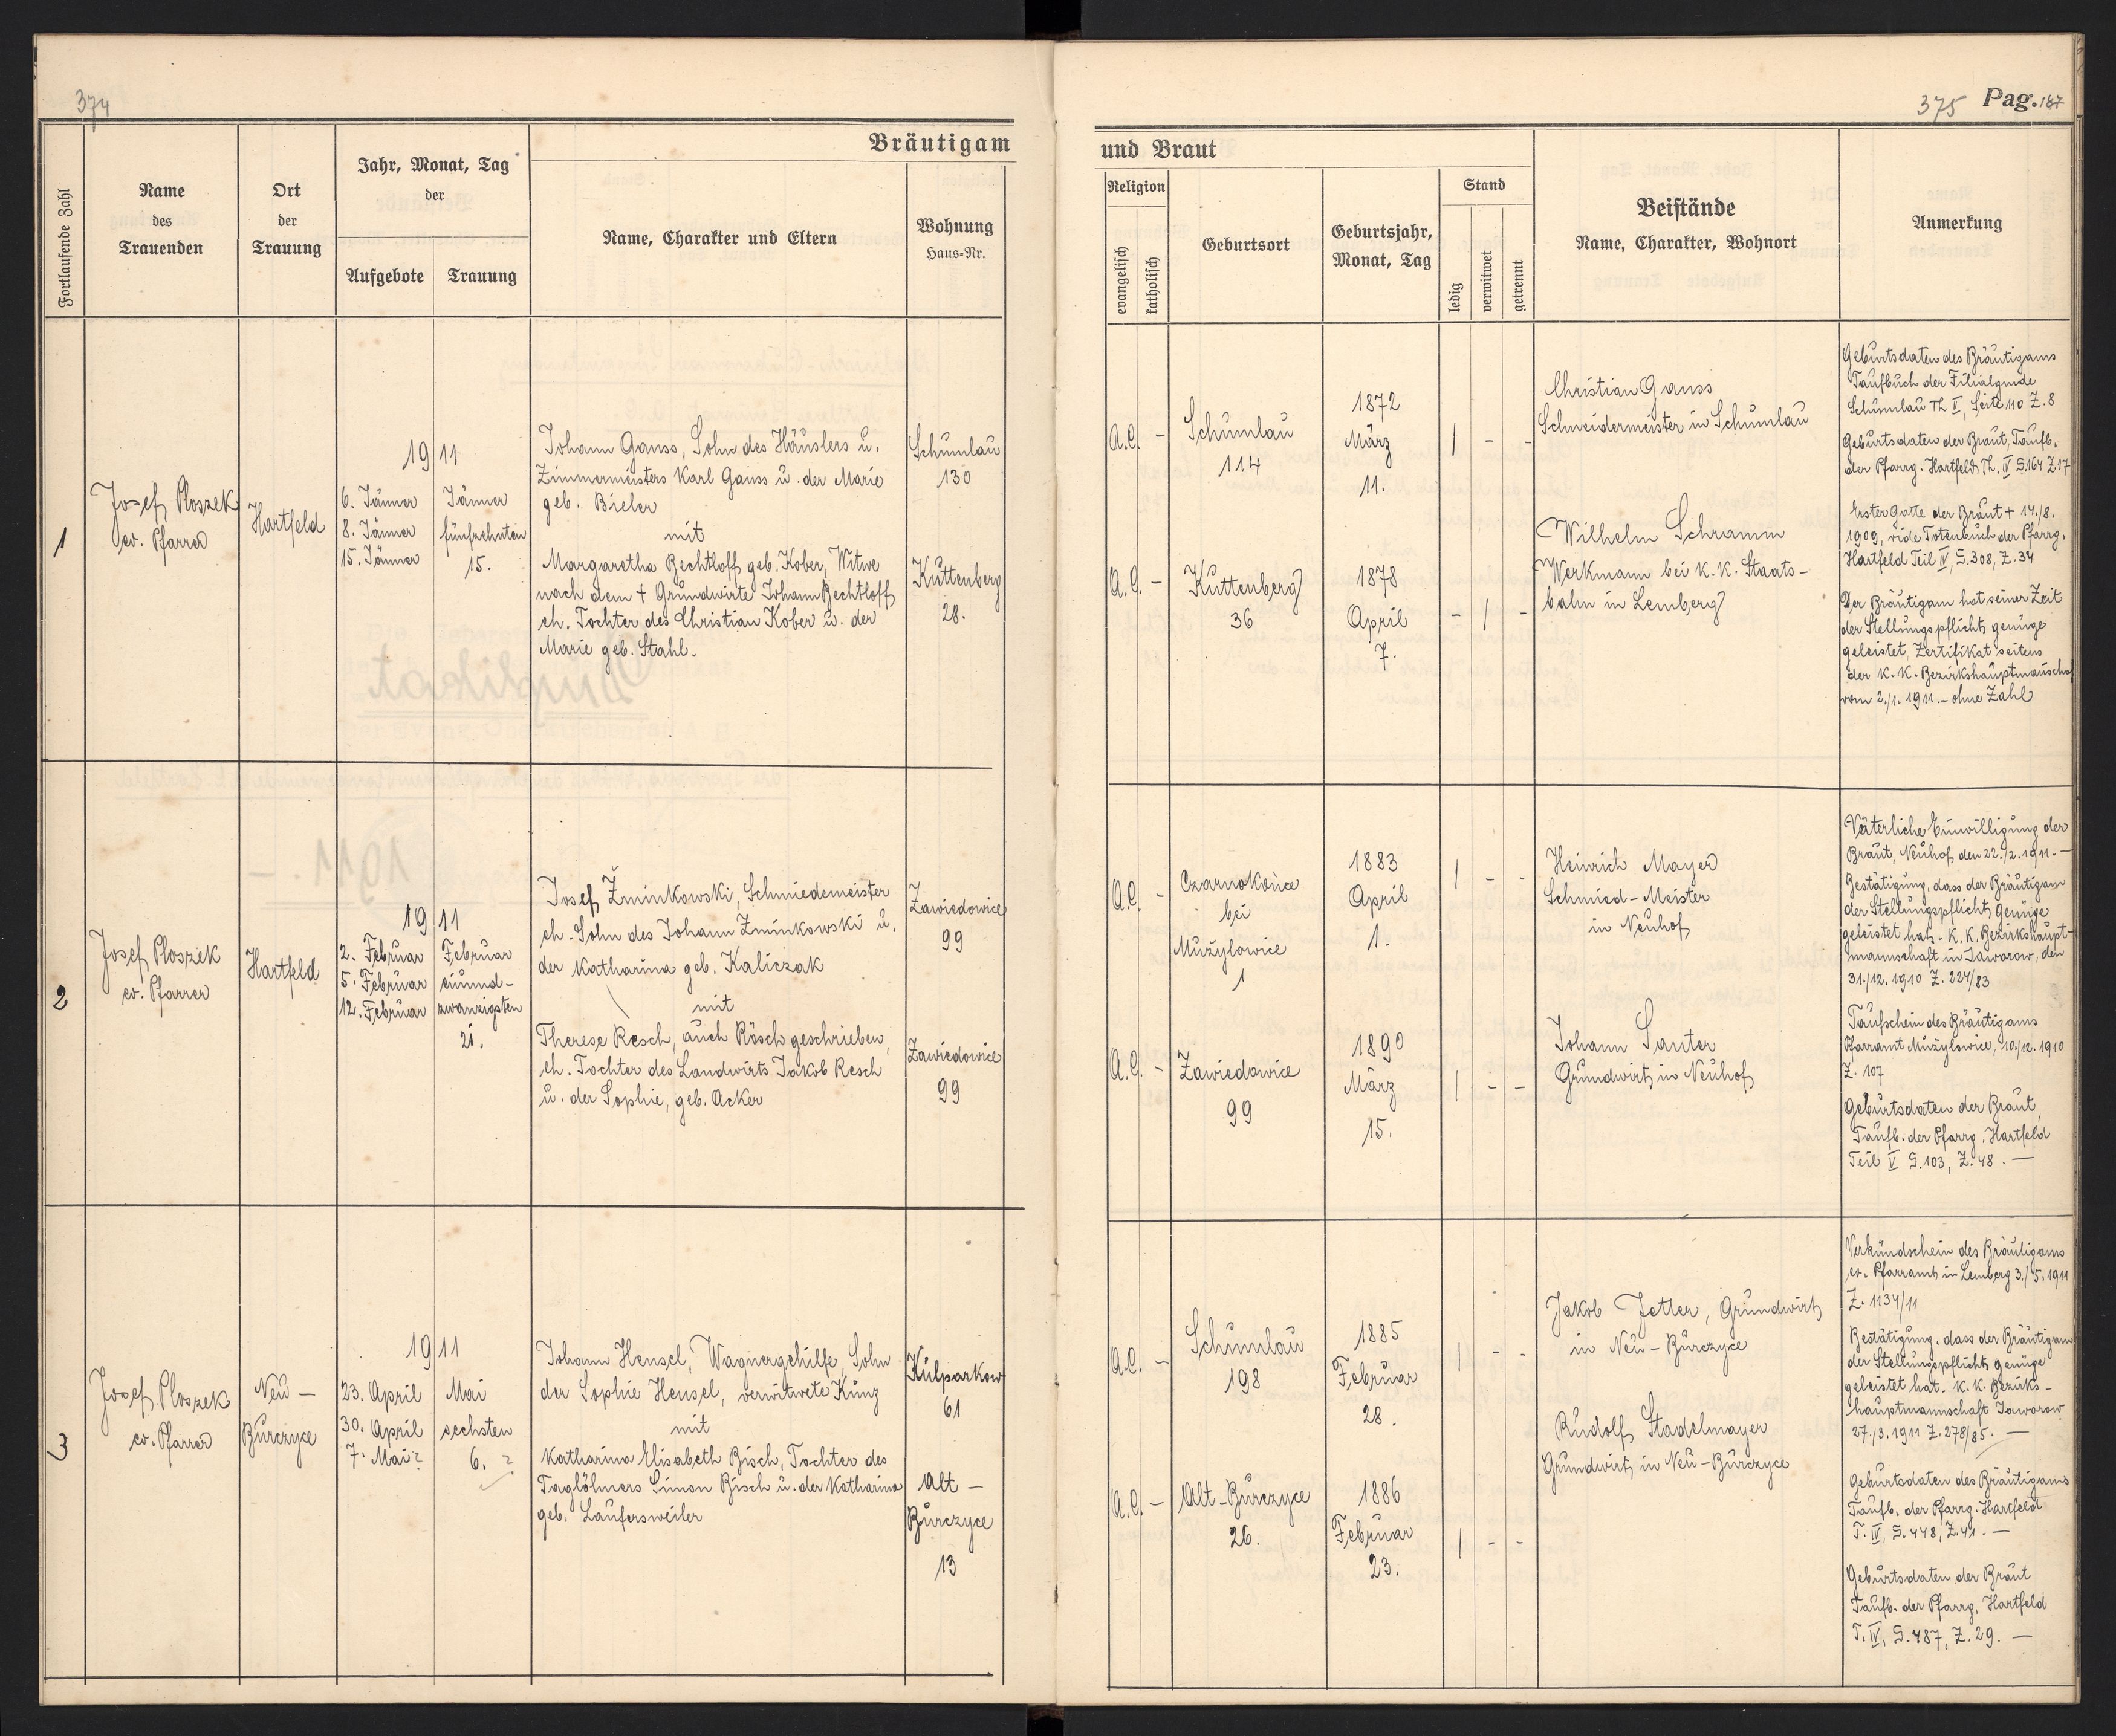 374
Bräutigam
Fortlaufende Zahl
Name
des
Trauenden
Ort
der
Trauung
Jahr, Monat, Tag
der
Aufgebote
Trauung
Name, Charakter und Eltern
Wohnung
Haus-Nr.
1
Josef Ploszek
ev. Pfarrer
Hartfeld
1911
6. Jänner
8. Jänner
15. Jänner
Jänner
fünfzehnten
15.
Johann Gauss, Sohn des Häuslers u.
Zimmermeisters Karl Gauss u. der Marie
geb. Bieler
mit
Margaretha Bechtloff geb. Kober, Witwe
nach dem + Grundwirte Johann Bechtloff
eh. Tochter des Christian Kober u. der
Marie geb. Stahl.
Schumlau
130
Kuttenberg
28.
2
Josef Ploszek
ev. Pfarrer
Hartfeld
1911
2. Februar
5. Februar
12. Februar
Februar
einund-
zwanzigsten
21.
Josef Žminkowski, Schmiedemeister
eh. Sohn des Johann Zminkowski u.
der Katharina geb. Kaliczak
mit
Therese Resch, auch Rösch geschrieben,
eh. Tochter des Landwirts Jakob Resch
u. der Sophie, geb. Acker
Zawiedowice
99
Zawiedowice
99
3
Josef Ploszek
ev. Pfarrer
Neu -
Burczyce
1911
23. April
30. April
7. Mai ?
Mai
sechsten
6. ?
Johann Hensel, Wagnergehilfe, Sohn
der Sophie Hensel, verwitwete Kunz
mit
Katharina Elisabeth Bisch, Tochter des
Taglöhners Simon Bisch u. der Katharina
geb. Laufersweiler
Kulparkow
61
Alt -
Burczyce
13
375 Pag. 187
und Braut
Religion
evangelisch
katholisch
Geburtsort
Geburtsjahr,
Monat, Tag
Stand
ledig
verwitwet
getrennt
Beistände
Name, Charakter, Wohnort
Anmerkung
A.C. -
Schumlau
114
1872
März
11.
1 - -
Christian Gauss
Schneidermeister in Schumlau
A.C. -
Kuttenberg
36
1878
April
7.
- 1 -
Wilhelm Schramm
Werkmann bei K.K. Staats-
bahn in Lemberg
Geburtsdaten des Bräutigams
Taufbuch der Filialgmde
Schumlau Th II, Seite 110 Z. 8
Geburtsdaten der Braut, Taufb.
der Pfarrg. Hartfeld Th. IV S. 164 Z 17
Erster Gatte der Braut + 14./8.
1909, vide Totenbuch der Pfarrg.
Hartfeld Teil IV, S. 308, Z. 34
Der Bräutigam hat seiner Zeit
der Stellungspflicht genüge
geleistet, Zertifikat seitens
der K. K. Bezirkshauptmanschaf
vom 2./1. 1911. - ohne Zahl
A.C. -
Czarnokońce
bei
Mużyłowice
1
1883
April
1.
1 - -
Heinrich Mayer
Schmied-Meister
in Neuhof
A.C. -
Zawiedowice
99
1890
März
15.
1 - -
Johann Sauter
Grundwirt in Neuhof
Väterliche Einwilligung der
Braut, Neuhof den 22./2. 1911. -
Bestätigung, dass der Bräutigam
der Stellungspflicht genüge
geleistet hat. - K. K. Bezirkshaupt-
mannschaft in Jaworow, den
31./12. 1910 Z. 224/83
Taufschein des Bräutigams
Pfarramt Mużyłowice, 10./12. 1910
Z. 107
Geburtsdaten der Braut,
Taufb. der Pfarrg. Hartfeld
Teil V S. 103, Z. 48. -
A.C. -
Schumlau
198
1885
Februar
28.
1 - -
Jakob Jetter, Grundwirt
in Neu-Burczyce
A.C. -
Alt-Burczyce
26.
1886
Februar
23.
1 - -
Rudolf Stadelmayer
Grundwirt in Neu-Burczyce
Verkündschein des Bräutigams
ev. Pfarramt in Lemberg 3./5. 1911
Z. 1134/11
Bestätigung, dass der Bräutigam
der Stellungspflicht genüge
geleistet hat. K. K. Bezirks-
hauptmannschaft Jaworow
27./3. 1911 Z. 278/85. -
Geburtsdaten des Bräutigams
Taufb. der Pfarrg. Hartfeld
T. IV, S. 448, Z. 41. -
Geburtsdaten der Braut
Taufb. der Pfarrg. Hartfeld
T. IV, S. 487, Z. 29. -